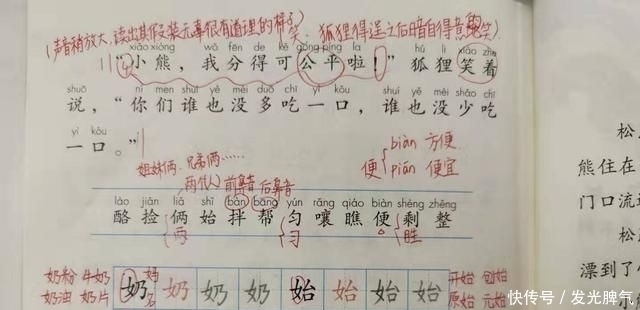 (声音稍放大,读出其假装无辜很有道理的样子) 笑:狐狸得逞之后暗自得意
xiǎo xióng wǒ fēn de kě gōng píng la hú li xiào zhe
“小熊,我分得可公平啦!”狐狸笑着
shuō nǐ men shuí yě méi duō chī yì kǒu shuí yě méi shǎo chī
说,“你们谁也没多吃一口,谁也没少吃
yì kǒu
一口。”
姐妹俩、兄弟俩……
两(人) 前鼻音 后鼻音
便 biàn 方便
pián 便宜
lào jiǎn liǎ shǐ bàn bāng yún rǎng qiáo biàn shèng zhěng
酪 捡 俩 始 拌 帮 匀 嚷 瞧 便 剩 整
两 匀 胜
奶粉 牛奶
奶油 奶片
奶 奶 奶 奶 始 始 始 始
开始 创始
原始 元始
松
熊住在
门口流
松
漂到了
小
快传号/发光脾气